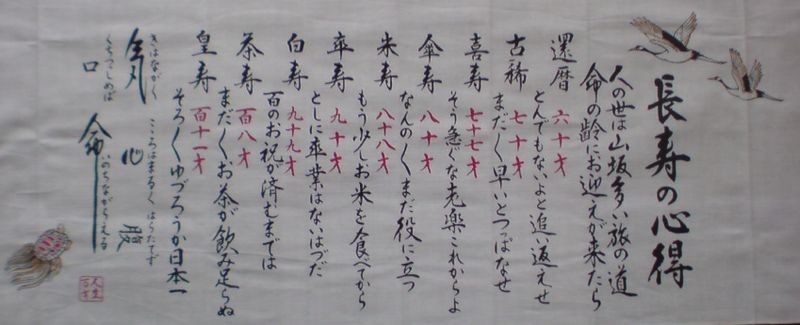 長寿の心得
人の世は山坂多い旅の道
命の齢にお迎えが来たら
還暦 六十才
とんでもないよと追い返えせ
古稀 七十才
まだ〱早いとつっぱなせ
喜寿 七十七才
そう急ぐな老楽これからよ
傘寿 八十才
なんの〱まだ役に立つ
米寿 八十八才
もう少しお米を食べてから
卒寿 九十才
としに卒業はないはづだ
白寿 九十九才
百のお祝が済むまでは
茶寿 百八才
まだ〱お茶が飲み足らぬ
皇寿 百十一才
そろ〱ゆづろうか日本一
きはながく 氣 こころはまるく はらたてず
心
くちつつしめば 口 命 いのちながらえる